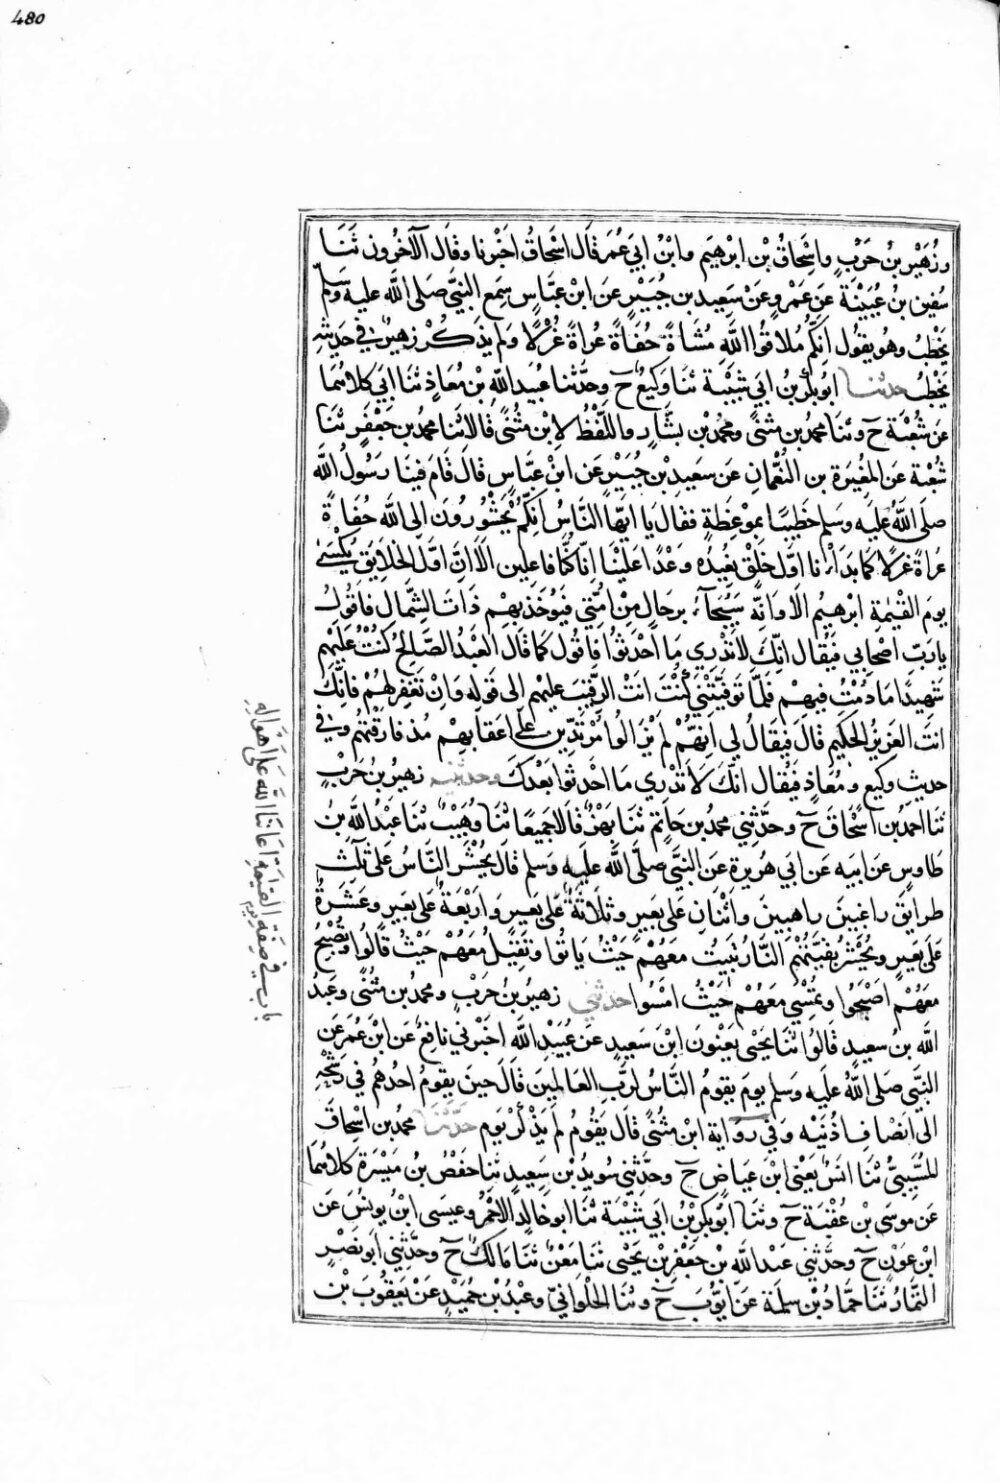 480
وزُهَيْر بنُ حَرْبٍ واِسْحاقُ بْن ابرهيَم وابنُ ابي عُمَر قال اسْحاقُ اخْبرنا وقال الآخرون ثَنَا
سُفين بنُ عُيَيْنَة عن عَمْرٍو عَنْ سَعِيد بن جُبَيْرٍ عن ابن عبّاس سمِع النبيّ صَلى اللّه عليه وسلّم
يَخْطُبُ وهو يقول اِنكُم مُلاقُوا اللّهِ مُشَاةً حُفَاةً عُراةً غُرْلًا ولم يذكُرْ زهيرٌ في حَديثهِ
يَخْطُبُ حدثنا ابوبكْر بنُ ابي شَيْبَة ثنا وكيعٌ ح وحدَّثنا عُبَيد اللّه بْن مُعَاذٍ ثنا ابي كلاهُما
عَن شُعْبَة ح وثنا محمد بن مثنى ومحمد بن بشّار واللّفظُ لِابن مثُنّى قالا ثنا محمد بن جَعْفَرٍ ثنا
شُعْبة عن المُغِيرَة بن النُّعْمانِ عَن سعيد بْن جُبَيْرٍ عَن ابنِ عبّاسٍ قال قام فينا رسُولُ اللّه
صلى اللّهُ عليه وسلم خَطيبًا بمَوْعِظةٍ فقال يا ايُّها النّاسُ اِنكُم تُحْشُرُونَ الى اللّه حُفاةً
عُراةً غُرْلًا كما بَدَأْنا اوّل خَلْق نعُيدُه وَعْدًا علَيْنا انّا كُنّا فاعلِين الَا اِنّ اوّل الخلايق يُكْسَى
يومَ القِيْمةِ ابرهيُم الا وانّه سَيُجَآءُ برِجَالٍ مِنْ امّتي فيُؤخَذ بِهِم ذَاتَ الشِّمال فاقُولُ
ياربّ اصْحابي فيُقال انّك لا تَدْري ما احْدثُوا فاقُول كما قال العَبْدُ الصّالح كُنْتُ علَيْهم
شَهيدًا مادُمْتُ فيهِمْ فلَمَّا توَفّيْتَني كُنْتَ انْتَ الرّقيبَ عليهم الى قوله وَاِنْ تَغْفِر لهُمْ فاِنّكَ
انتَ العَزيزُ الحكيم قال فيُقالُ لي اِنّهُم لم يَزالوا مُرْتدّين على اعقابهِمْ مُذ فارقْتَهُم وفي
حديثِ وكيعٍ ومُعَاذٍ فيُقال انّك لا تَدْري ما احْدثوا بَعْدكَ وحدثني زهيرُ بنُ حَرْبٍ
ثنا احمد بن اسْحَاق ح وحَدَّثني محمد بن حَاتِم ثنا بَهْزٌ قالا جَميعًا ثنا وُهَيْبٌ ثنا عبدُ اللّه بنُ
طاوسٍ عَن ابيه عَن ابي هُريرة عن النّبيّ صلّى اللّه عليه وسلم قال يُحْشَر النّاسُ على ثَلٰث
طرايقَ راغبين راهبينَ واثْنَانِ على بَعيرٍ وثلاثةٌ على بعيرٍ وارْبَعةٌ على بَعير وعَشَرةٌ
على بَعيرٍ وتُحْشَر بقيّتُهُم النّار تَبيتُ معَهُم حَيْثُ باتُوا وتَقيلُ معَهُم حَيْثُ قالُوا وتُصْبِحُ
معَهُمْ اَصْبَحُوا وتمْسي معَهُمْ حَيْثُ امْسَوا حدثني زهيرُ بنُ حَربٍ ومحمد بن مثُنّى وعَبدُ
اللّه بنُ سعيد قالوا ثنا يحيى يعنُون ابْنَ سَعيدٍ عَن عُبَيْد اللّه اخبرني نافِعٌ عن ابنِ عُمر عَن
النّبيّ صَلى اللّهُ علَيه وَسلم يومَ يقومُ النّاسُ لرَبّ العالمين قال حينَ يقومُ احدُهُم في رَشْحِه
الى انصَافِ اُذُنَيْه وَفي روَاية ابن مثُنّى قال يَقُومُ لم يَذْكُر يوم حَدَّثنا محمد بن اسْحاق
المُسَيّبيّ ثنا انَسٌ يعَني ابن عياضٍ ح وحدَّثني سُويدُ بْن سَعيدٍ ثنا حَفْصُ بن مَيْسَرة كلاهُما
عَن موسَى بْن عُقْبَة ح وثنا ابوبكرِ بنُ ابي شَيْبَة ثنا ابو خالِدٍ الاحْمرُ وعيسَى ابْنُ يونُس عَن
ابن عَوْنٍ ح وحدَّثني عبد اللّه بن جَعْفر بْن يَحْيى ثنا مَعْنٌ ثنا مَالكٌ ح وحدَّثني ابو نَصْرٍ
التمّارُ ثنا حمّادُ بْن سلمة عَن ايّوبَ ح وثنا الحُلْوانيّ وعبْدُ بْن حُمَيْدٍ عَنْ يعقوبَ بْن
باب في صفة يوم القيمة اعاننا اللّه على اهواله